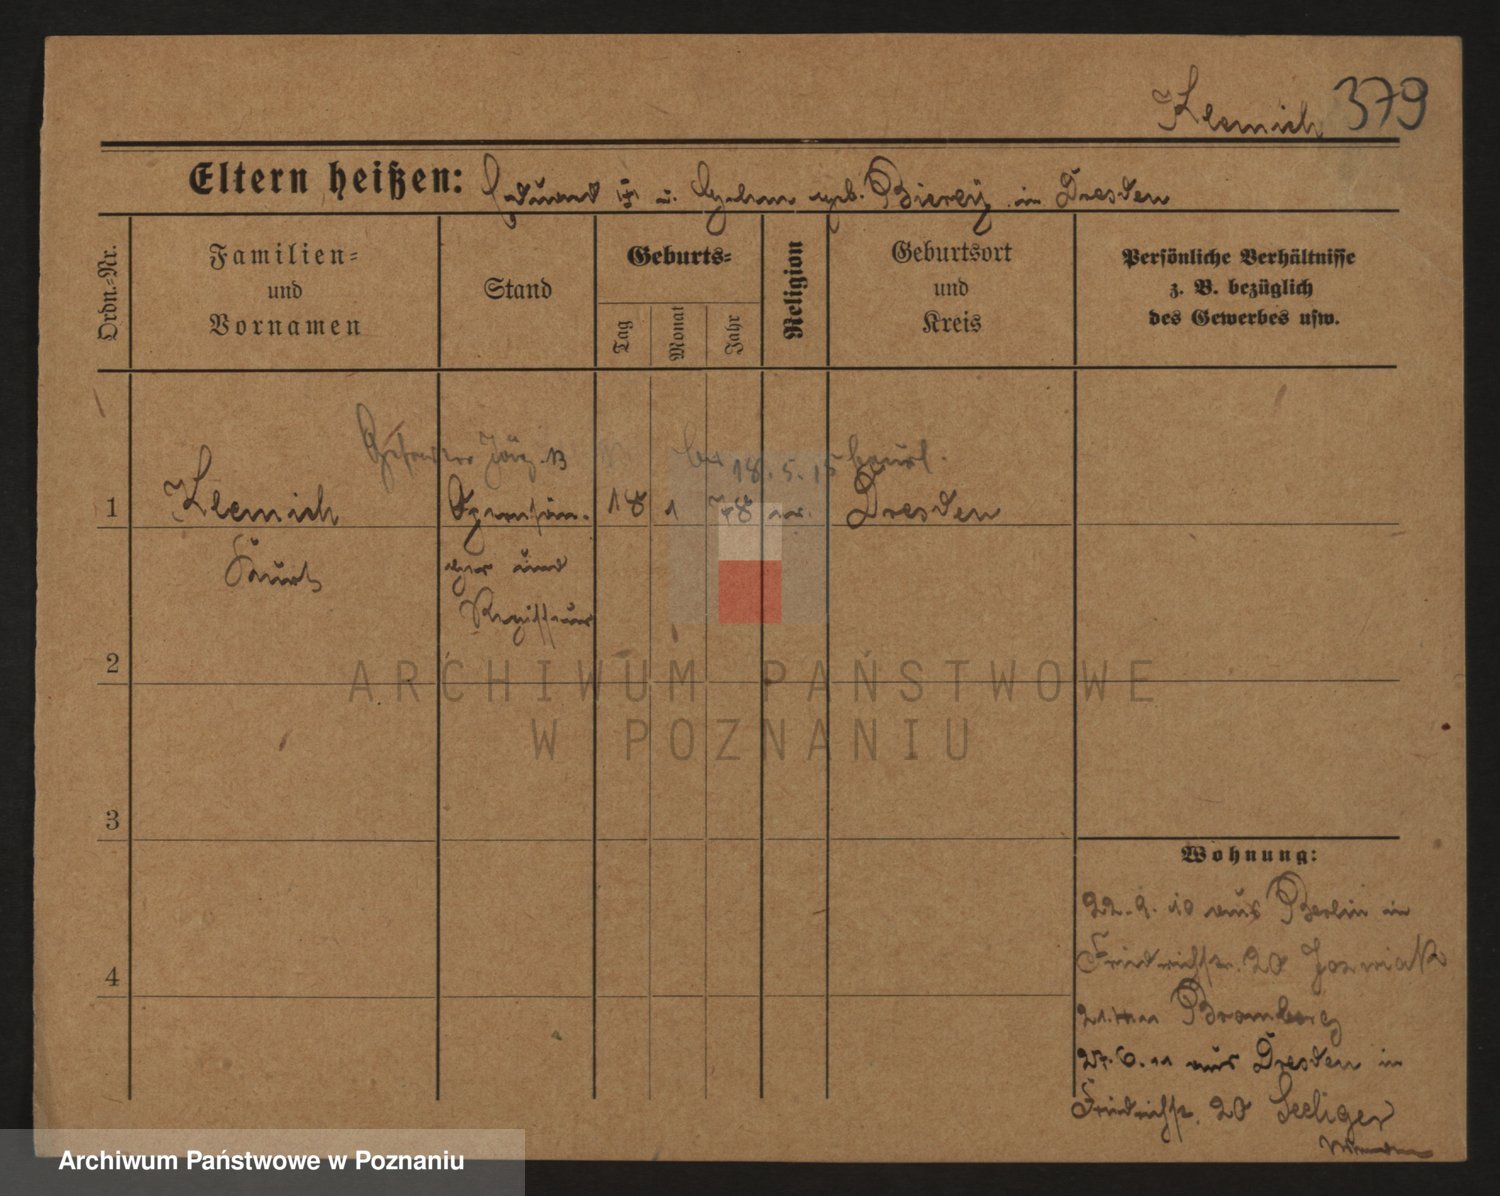 Klemich 379
Eltern heißen: Eduard u. geb. Bierey in Dresden
Ordn.-Nr.
Familien=
und
Vornamen
Stand
Geburts=
Tag
Monat
Jahr
Religion
Geburtsort
und
Kreis
Persönliche Verhältnisse
z. B. bezüglich
des Gewerbes usw.
13 18.5.15 beurl.
1 Klemich Opernsän- 18 1 78 Dresden
Kurt ger und
Regisseur
2
3
4
Wohnung:
22.9.10 aus Berlin in
Friedrichstr. 20 Jozwiak
Bromberg
27.6.11 aus Dresden in
Friedrichstr. 20 Seeliger
ARCHIWUM PAŃSTWOWE
W POZNANIU
Archiwum Państwowe w Poznaniu